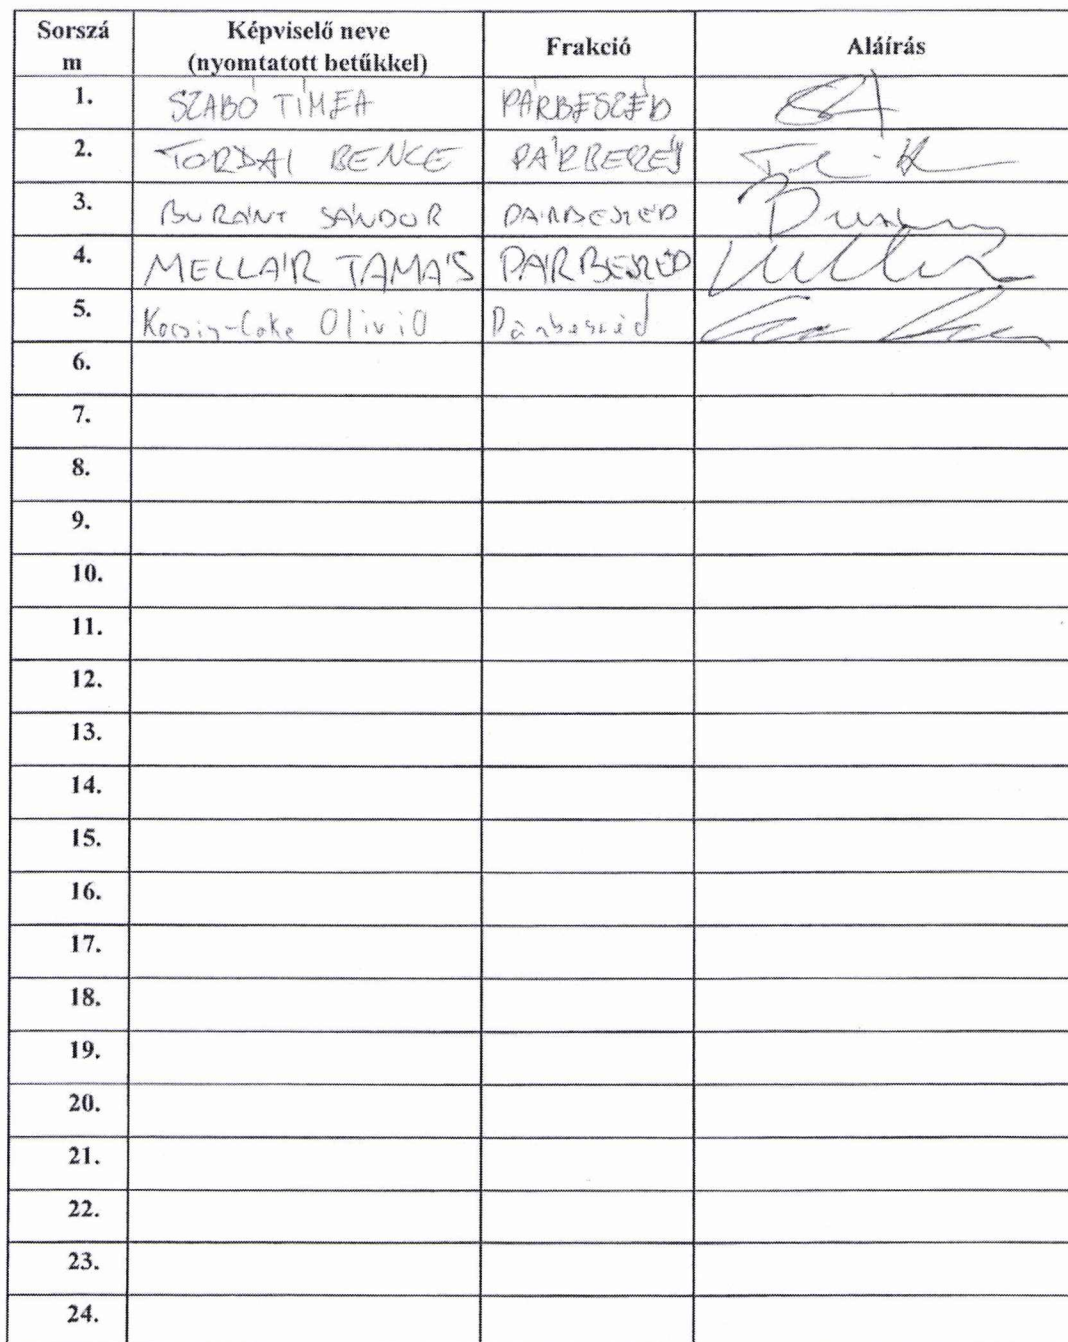 Sorszá
m
Képviselő neve
(nyomtatott betűkkel)
Frakció
Aláírás
1. SZABÓ TÍMEA PÁRBESZÉD
2. TORDAI BENCE PÁRBESZÉD
3. BURÁNY SÁNDOR PÁRBESZÉD
4. MELLÁR TAMÁS PÁRBESZÉD
5. Kocsis-Cake Olivio Párbeszéd
6.
7.
8.
9.
10.
11.
12.
13.
14.
15.
16.
17.
18.
19.
20.
21.
22.
23.
24.